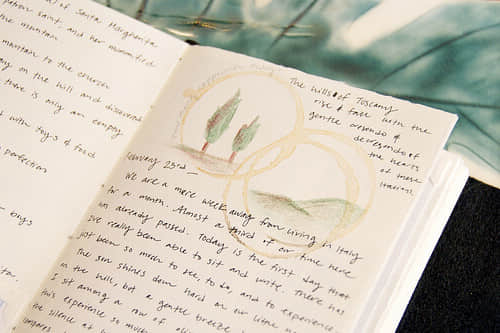 of Santa Margherita
patron saint and her mummified
the mountain.
mountain to the church
on the hill and discovered
there is only an empty
with toys & food
perfection
- boys
The hills of Toscany
rise & fall with the
gentle crescendo &
decrescendo of
the hearts
of these
Italians.
February 23rd -
We are a mere week away from living in Italy
for a month. Almost a third of our time here
has already passed. Today is the first day that
I've really been able to sit and write. There has
just been so much to see, to do, and to experience.
The sun shines down hard on our
on the hill, but a gentle breeze
I sit among a row of
this experience so much
the silence